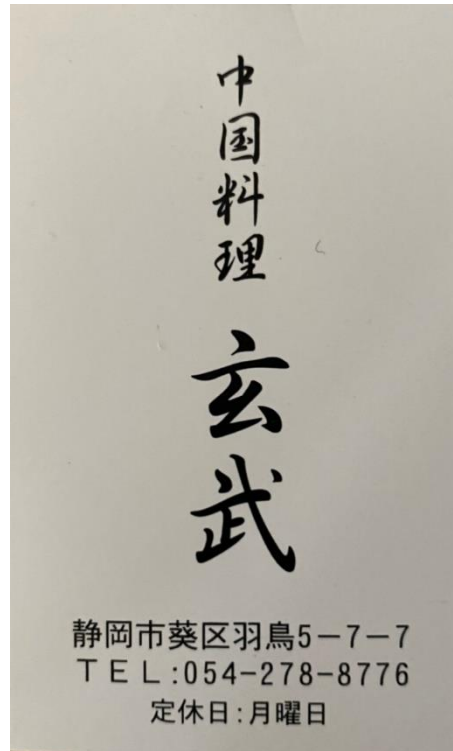 中国料理
玄武
静岡市葵区羽鳥5-7-7
TEL:054-278-8776
定休日:月曜日